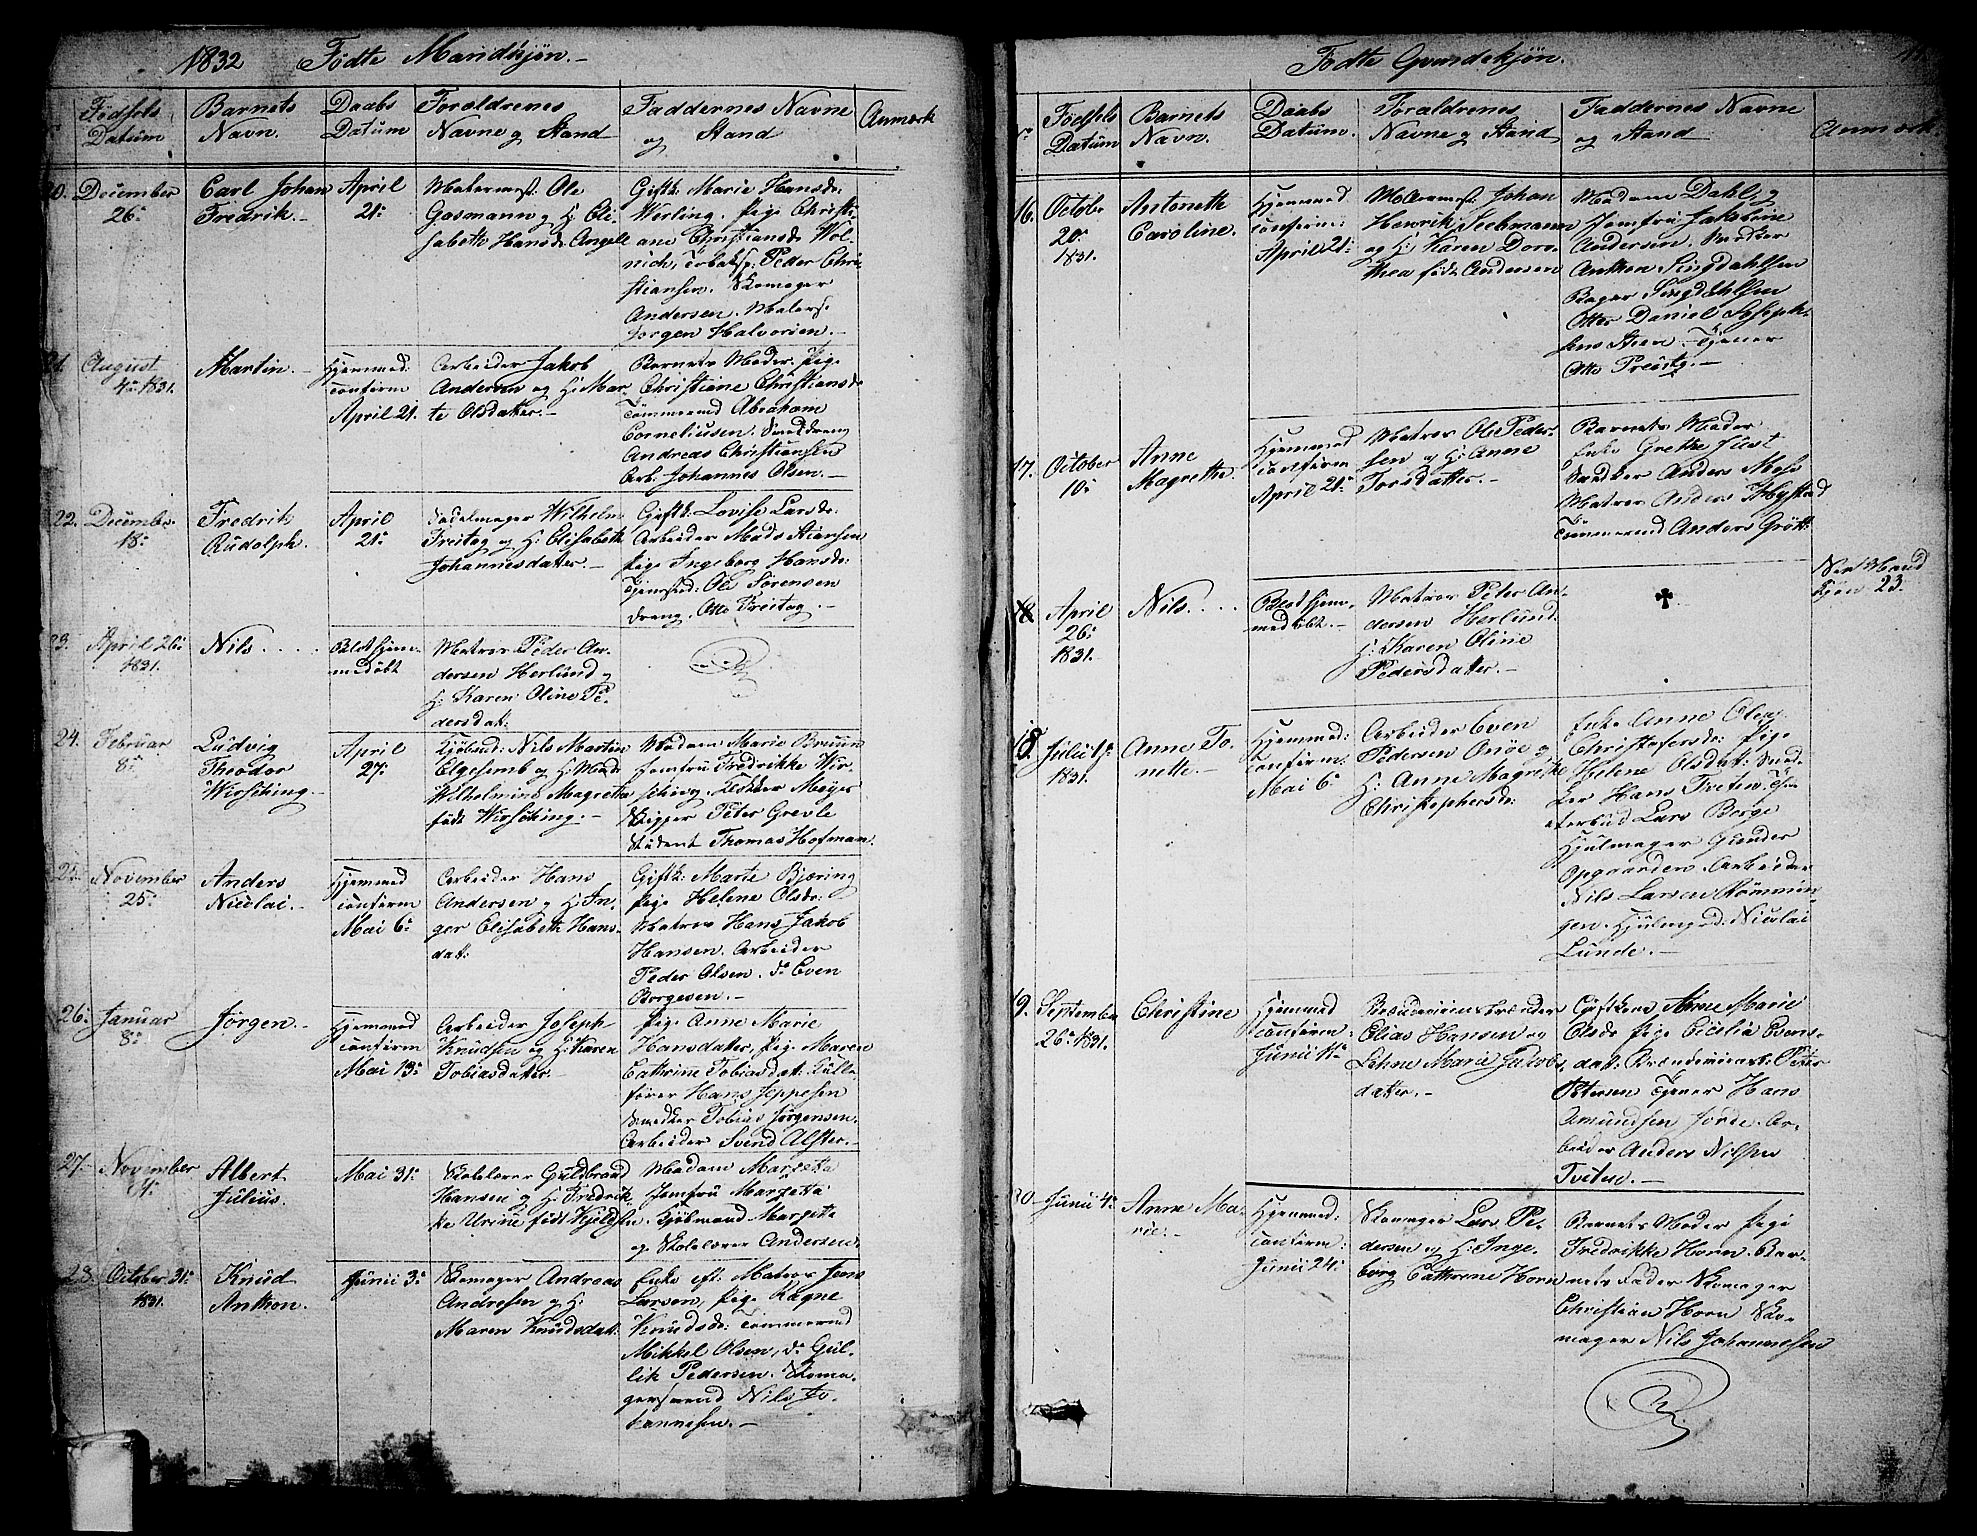 1832 Födte Mandkjön.-
Födsels
Datum
Barnets
Navn.
Daabs
Datum
Foraldrenes
Navne og Stand
Faddernes Navne
og Stand
Anmærk
20. December
26:
Carl Johan
Fredrik.-
April
21:
Ole
Gasmann og H: Eli-
sabeth Hansd: Angell
Giftk: Marie Hansd:
Werling. Pige Christi-
ane Christiansd:
Peder Chri-
stiansen. Skomager
Andersen. Malers:
Jörgen Halvorsen.-
21. August
4: 1831.
Martin.-
Hjemmed:
confirm
April 21.
Arbeider Jakob
Andersen og H: Mar-
te Olsdatter.-
Barnets Moder. Pige
Christiane Christiansd:
Tömmermd Abraham
Corneliusen. Smeddreng
Andreas Christiansen
Arb. Johannes Olsen.-
22. December
18:
Fredrik
Rudolph.
April
21:
Sadelmager Wilhelm
Freitag og H: Elisabeth
Johannesdatter.-
Giftk: Lovise Larsd:
Arbeider Mads Stiansen
Pige Ingeborg Hansd:
Ole Sörensen
dreng. Otto Freitag.-
23. April 26:
1831.
Nils....
Blot hjem-
medöbt
Matros Peder An-
dersen Herlund og
H: Karen Oline Pe-
dersdat:
24. Februar
8:
Ludvig
Theodor
Wirsching.
April
27:
Kjöbmd: Nils Martin
Elgesemb og H: Mad:
Wilhelmine Magretha
född Wirsching.-
Madam Marie Bruun
Jomfru Fredrikke Wir-
sching. Meyer
Skipper Peter Grevle
Student Thomas Hofman.
25. November
25:
Anders
Nicolai.-
Hjemmed
confirm
Mai 6:
Arbeider Hans
Andersen og H: In-
ger Elisabeth Hans-
dat:
Giftk: Marte Bjæring
Pige Helene Olsd:
Matros Hans Jakob
Hansen. Arbeider
Peder Olsen. do Even
Borgesen.-
26: Januar
8:
Jörgen.-
Hjemmed
confirm
Mai 13:
Arbeider Joseph
Knudsen og H: Karen
Tobiasdatter.-
Pige Anne Marie
Hansdatter, Pige Maren
Cathrine Tobiasdat:
förer Hans Jeppesen
Snedker Tobias Jörgensen.
Arbeider Svend Alster.-
27. November
14:
Albert
Julius.
Mai 31:
Skolelærer Guldbrand
Hansen og H: Fredrik-
ke Urine född Kjeldsen.
Madam Margetta
Jomfru Margetta
Kjöbmand Margetta
og Skolelærer Andersen.
28. October 31:
1831.
Knud
Anthon.
Junii 3:
Skomager Andreas
Andresen og H:
Maren Knudsdatt:
Enke eft: Matros Jens
Larsen, Pige Ragne
Knudsd: Tömmermd
Mikkel Olsen, do Gul-
lik Pedersen. Skoma-
gersvend Nils Jo-
hannesen.-
Födte Qvindekjön.
Födsels
Datum
Barnets
Navn.
Daabs
Datum.
Foraldrenes
Navne og Stand
Faddernes Navne
og Stand
Anmærk.
16. Octobr
20:
1831.
Antonette
Caroline.
Hjemmed
confirm:
April 21:
Johan
Henrik Seehmann
og H: Karen Doro-
thea född Andersen
Madam Dahl og
Jomfru Jakobine
Andersen. Snedker
Anthon Singdahlsen
Bager Singdahlsen
Otter Daniel Joseph-
sens Stien. Tjener
Otto Freitag.-
17. October
10:
Anne
Magrethe.
Hjemmed
confirm
April 21:
Matros Ole Peder-
sen og H: Anne
Torsdatter.-
Barnets Moder
Enke Grethe Just
Snedker Anders Moss
Matros Anders Myhstad
Tömmermd Anders Gröth:
18 April
26:
1831.
Nils....
Blot hjem-
medöbt.-
Matros Peter An-
dersen Herlund:
H: Karen Oline
Pedersdatter.-
Ved Mand
Kjön 23.
18. Julii
1831.
Anne To-
nette.-
Hjemmed:
confirm.
Mai 6:
Arbeider Even
Pedersen Onöe og
H: Anne Magrethe
Christophersd:
Enke Anne Olea
Christofersd: Pige
Helene Olsdat: Sned-
ker Hans Tveten.
Lars Berge
Hjulmager Gunder
Opgaarden. Arbeider
Nils Larsen Römmin-
gen. Hjulmagd: Nicolai
Lunde.-
19. September
26: 1831.
Christine
Hjemmed
confirm:
Junii 11:
Elias Hansen og
Lehne Marie Jakobs-
datter.-
Giftkone Anne Marie
Olsd: Pige Cicelia Evens-
dat: Peter
Petersen Tjener Hans
Amundsen Jorde. Ar-
beider Anders Nilsen
Tveten.-
20. Junii 4:
Anne Ma-
rie.-
Hjemmed:
confirm:
Junii 24:
Skomager Lars Pe-
dersen og H: Inge-
borg Cathrine Horn
Barnets Moder Pige
Fredrikke Horn. Bar-
nets Fader Skomager
Christian Horn Sko-
mager Nils Johannesen